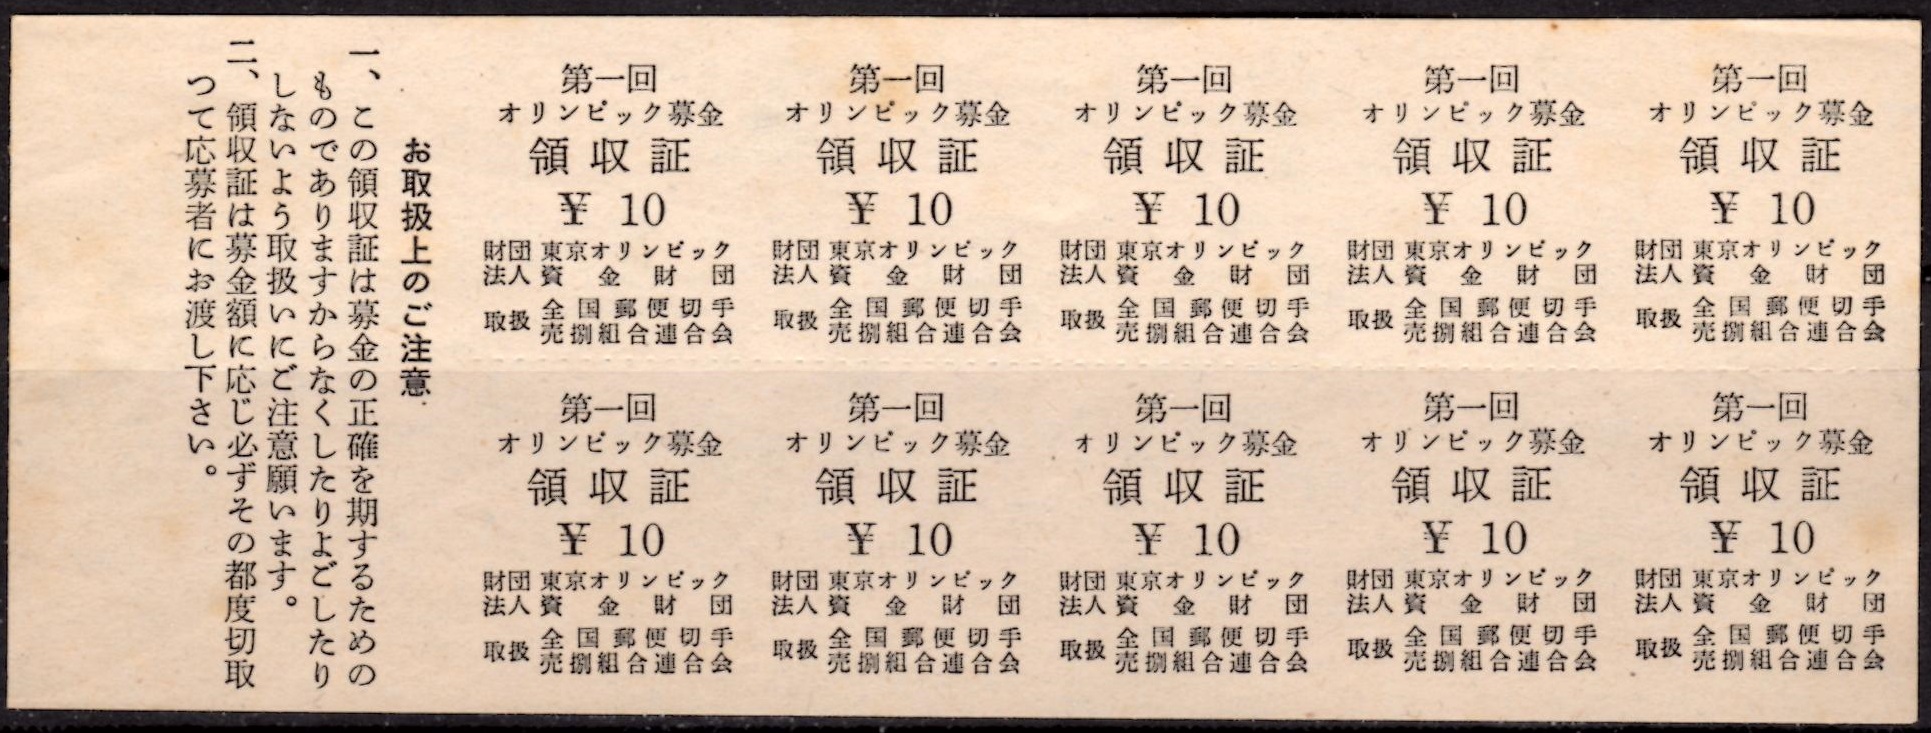 お取扱上のご注意
一、この領収証は募金の正確を期するための
ものでありますからなくしたりよごしたり
しないよう取扱いにご注意願います。
二、領収証は募金額に応じ必ずその都度切取
つて応募者にお渡し下さい。
第一回
オリンピック募金
領収証
¥ 10
財団法人 東京オリンピック
資金財団
取扱 全国郵便切手
売捌組合連合会
第一回
オリンピック募金
領収証
¥ 10
財団法人 東京オリンピック
資金財団
取扱 全国郵便切手
売捌組合連合会
第一回
オリンピック募金
領収証
¥ 10
財団法人 東京オリンピック
資金財団
取扱 全国郵便切手
売捌組合連合会
第一回
オリンピック募金
領収証
¥ 10
財団法人 東京オリンピック
資金財団
取扱 全国郵便切手
売捌組合連合会
第一回
オリンピック募金
領収証
¥ 10
財団法人 東京オリンピック
資金財団
取扱 全国郵便切手
売捌組合連合会
第一回
オリンピック募金
領収証
¥ 10
財団法人 東京オリンピック
資金財団
取扱 全国郵便切手
売捌組合連合会
第一回
オリンピック募金
領収証
¥ 10
財団法人 東京オリンピック
資金財団
取扱 全国郵便切手
売捌組合連合会
第一回
オリンピック募金
領収証
¥ 10
財団法人 東京オリンピック
資金財団
取扱 全国郵便切手
売捌組合連合会
第一回
オリンピック募金
領収証
¥ 10
財団法人 東京オリンピック
資金財団
取扱 全国郵便切手
売捌組合連合会
第一回
オリンピック募金
領収証
¥ 10
財団法人 東京オリンピック
資金財団
取扱 全国郵便切手
売捌組合連合会